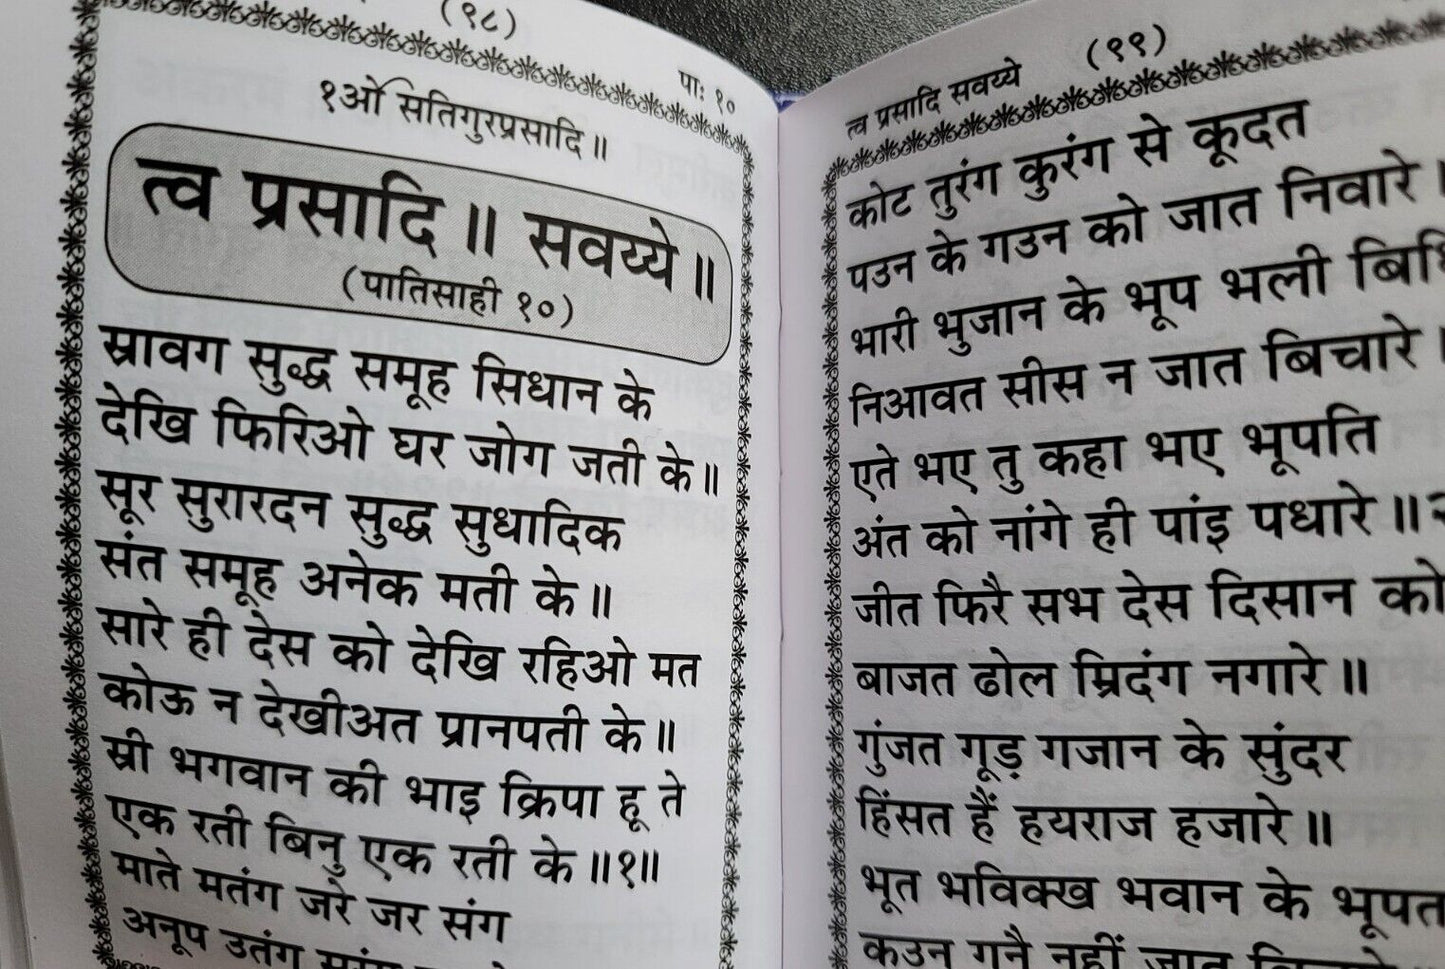 (९८)
पाः १०
१ओं सतिगुरप्रसादि॥
त्व प्रसादि॥ सवय्ये॥
(पातिसाही १०)
स्रावग सुद्ध समूह सिधान के
देखि फिरिओ घर जोग जती के॥
सूर सुरारदन सुद्ध सुधादिक
संत समूह अनेक मती के॥
सारे ही देस को देखि रहिओ मत
कोऊ न देखीअत प्रानपती के॥
स्री भगवान की भाइ क्रिपा हू ते
एक रती बिनु एक रती के॥१॥
माते मतंग जरे जर संग
अनूप उतंग
त्व प्रसादि सवय्ये
(९९)
कोट तुरंग कुरंग से कूदत
पउन के गउन को जात निवारे।
भारी भुजान के भूप भली
निआवत सीस न जात बिचारे।
एते भए तु कहा भए भूपति
अंत को नांगे ही पांइ पधारे॥
जीत फिरै सभ देस दिसान को
बाजत ढोल म्रिदंग नगारे॥
गुंजत गूड़ गजान के सुंदर
हिंसत हैं हयराज हजारे॥
भूत भविक्ख भवान के भूपत
कउन गनै नहीं जात